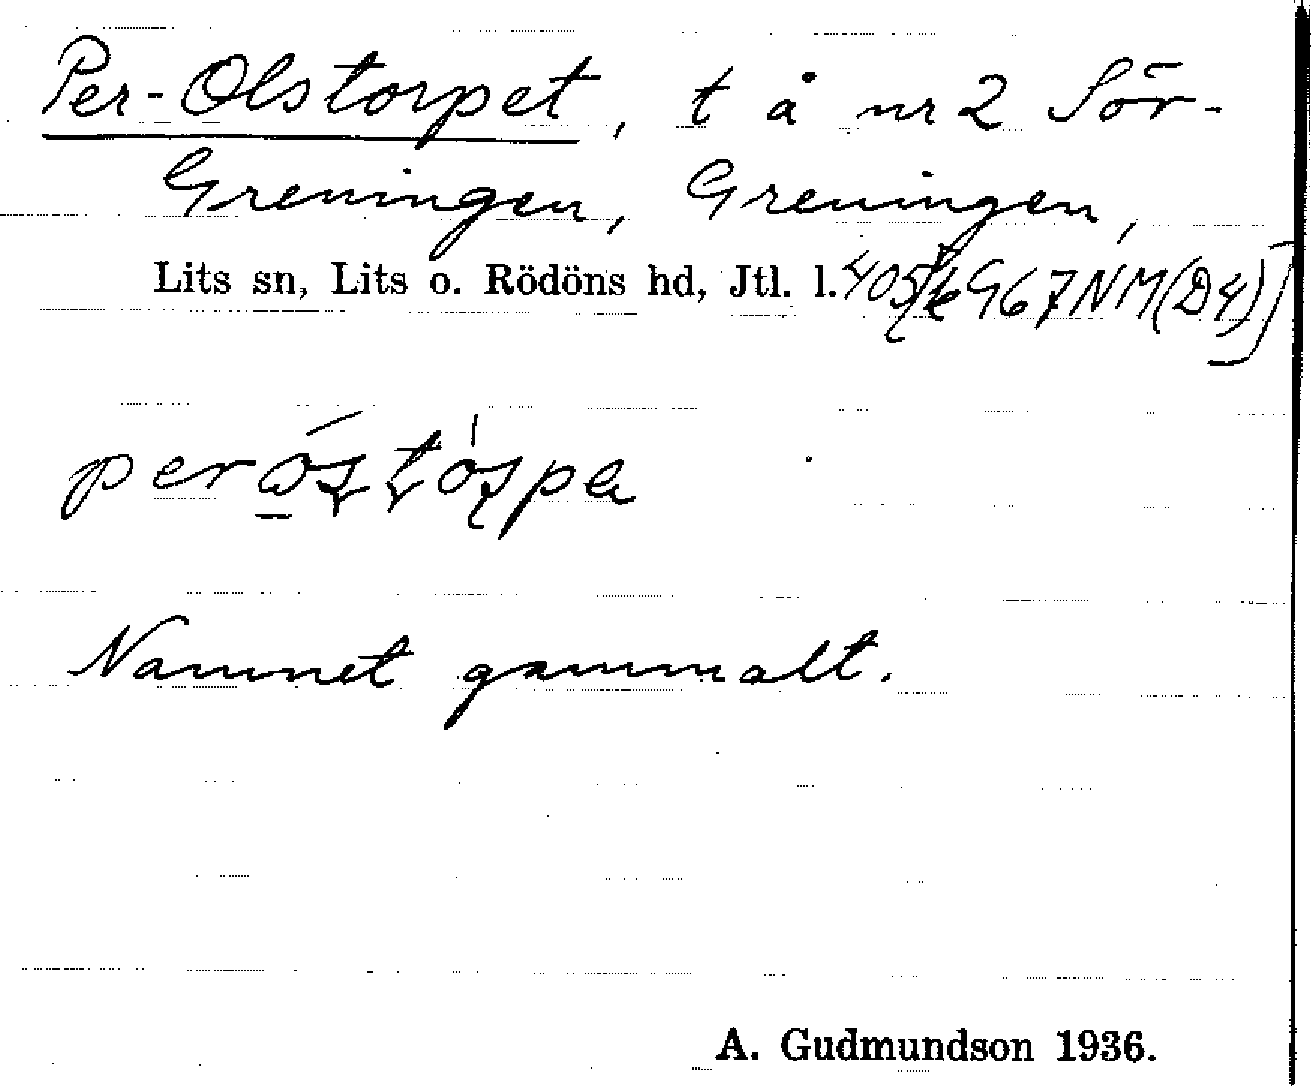 Per-Olstorpet, t å nr 2 Sör-
Greningen, Greningen,
Lits sn, Lits o. Rödöns hd, Jtl. l.
Namnet gammalt.
A. Gudmundson 1936.